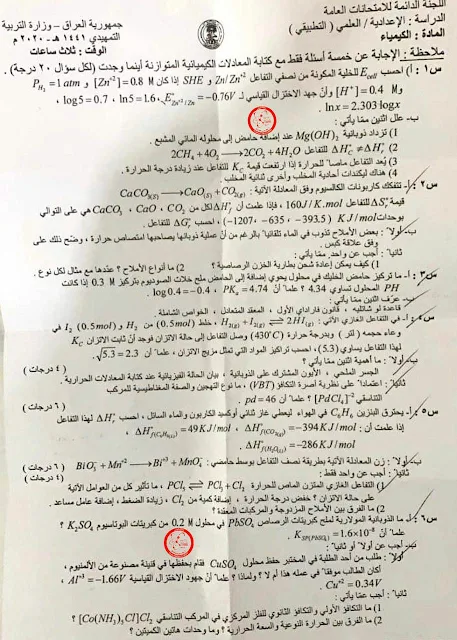 اللجنة الدائمة للامتحانات العامة
جمهورية العراق - وزارة التربية
الدراسة : الإعدادية / العلمي ( التطبيقي )
التمهيدي ١٤٤١هـ - ٢٠٢٠م
المادة : الكيمياء
الوقت : ثلاث ساعات
ملاحظة : الإجابة عن خمسة أسئلة فقط مع كتابة المعادلات الكيميائية المتوازنة أينما وجدت (لكل سؤال ٢٠ درجة) .
س١ : أ) احسب Ecell للخلية المكونة من نصفي التفاعل Zn/Zn+2 و SHE إذا كان [Zn+2] = 0.8 M و PH2 = 1 atm
و [H+] = 0.4 M وأن جهد الاختزال القياسي لـ E°Zn+2/Zn = −0.76V ، ln5 = 1.6 ، log5 = 0.7 ،
lnx = 2.303 logx .
ب- علل اثنين مما يأتي :
1) تزداد ذوبانية Mg(OH)2 عند إضافة حامض إلى محلوله المائي المشبع .
2) ΔHr° ≠ ΔHf° للتفاعل 2CH4 + 4O2 → 2CO2 + 4H2O
3) يُعد التفاعل ماصا للحرارة إذا ارتفعت قيمة KC للتفاعل عند زيادة درجة الحرارة .
4) هناك ليكندات أحادية المخلب وأخرى ثنائية المخلب .
س٢ : أ- تتفكك كاربونات الكالسيوم وفق المعادلة الآتية : CaCO3(S) → CaO(S) + CO2(g)
قيمة ΔSr° للتفاعل 160 J/K.mol ، فإذا علمت أن ΔHf° لكل من CO2 ، CaO ، CaCO3 هي على التوالي
بوحدات KJ/mol (−393.5 ، −635 ، −1207) ، احسب ΔGr° للتفاعل .
ب- أولا : بعض الأملاح تذوب في الماء تلقائيا بالرغم من أن عملية ذوبانها يصاحبها امتصاص حرارة ، وضّح ذلك على
وفق علاقة كبس .
ثانيا : أجب عن واحد مما يأتي :
1) كيف يمكن إعادة شحن بطارية الخزن الرصاصية ؟ 2) ما أنواع الأملاح ؟ عددها مع مثال لكل نوع .
س٣ : أ- ما تركيز حامض الخليك في محلول يحوي إضافة إلى الحامض ملح خلات الصوديوم بتركيز 0.3 M إذا كانت
PH المحلول تساوي 4.34 ؟ علما أن PKa = 4.74 ، log0.4 = −0.4 .
ب- عرّف اثنين مما يأتي :
قاعدة لو شاتليه ، قانون فاراداي الأول ، المعقد المتعادل ، الخواص الشاملة .
س٤ : أ- في التفاعل الغازي الآتي : H2(g) + I2(g) ⇌ 2HI(g) ، خلط (0.5mol) من H2 و (0.5mol) I2 في
وعاء حجمه (1 لتر) وبدرجة حرارة (430°C) وصل التفاعل إلى حالة الاتزان فوجد أنّ ثابت الاتزان KC
لهذا التفاعل يساوي (5.3) ، احسب تراكيز المواد التي تمثل مزيج الاتزان ، علما أن √5.3 = 2.3 .
ب- أولا : ما أهمية اثنين مما يأتي ؟ (٤ درجات)
الجسر الملحي ، الأيون المشترك على الذوبانية ، بيان الحالة الفيزيائية عند كتابة المعادلات الحرارية .
ثانيا : اعتمادا على نظرية أصرة التكافؤ (VBT) ، ما نوع التهجين والصفة المغناطيسية للمركب
التناسقي [PdCl4]−2 ؟ علما أن pd = 46 . (٦ درجات)
س٥ : أ- يحترق البنزين C6H6 في الهواء ليعطي غاز ثنائي أوكسيد الكاربون والماء السائل ، احسب ΔHr° لهذا التفاعل
إذا علمت أن : ΔH°f(CO2(g)) = −394 KJ/mol ، ΔH°f(C6H6(ℓ)) = 49 KJ/mol ،
ΔH°f(H2O(ℓ)) = −286 KJ/mol
ب- أولا : زن المعادلة الآتية بطريقة نصف التفاعل بوسط حامضي : BiO3− + Mn+2 → Bi+3 + MnO4− (٦ درجات)
ثانيا : أجب عن واحد فقط : (٤ درجات)
1) التفاعل الغازي المتزن الماص للحرارة PCl5 ⇌ PCl3 + Cl2 ، ما تأثير كل من العوامل الآتية
على حالة الاتزان ؟ خفض درجة الحرارة ، إضافة كمية من Cl2 ، زيادة الضغط ، إضافة عامل مساعد .
2) ما الفرق بين الأملاح المزدوجة والمركبات المعقدة ؟
س٦ : أ- ما الذوبانية المولارية لملح كبريتات الرصاص PbSO4 في محلول 0.2 M من كبريتات البوتاسيوم K2SO4 ؟
علما أن KSP(PbSO4) = 1.6×10−8
ب- أجب عن أولا أو ثانيا :
أولا : طلب من أحد الطلبة في المختبر حفظ محلول CuSO4 فقام بحفظها في قنينة مصنوعة من الألمنيوم ،
أكان الطالب موفقا في عمله هذا أم لا ؟ ولماذا ؟ علما أنّ جهود الاختزال القياسية Al+3 = −1.66V ،
Cu+2 = 0.34V
ثانيا : أجب عما يأتي :
1) ما التكافؤ الأولي والتكافؤ الثانوي للفلز المركزي في المركب التناسقي [Co(NH3)5Cl]Cl2 ؟
2) ما الفرق بين الحرارة النوعية والسعة الحرارية ؟ وما وحدات هاتين الكميتين ؟